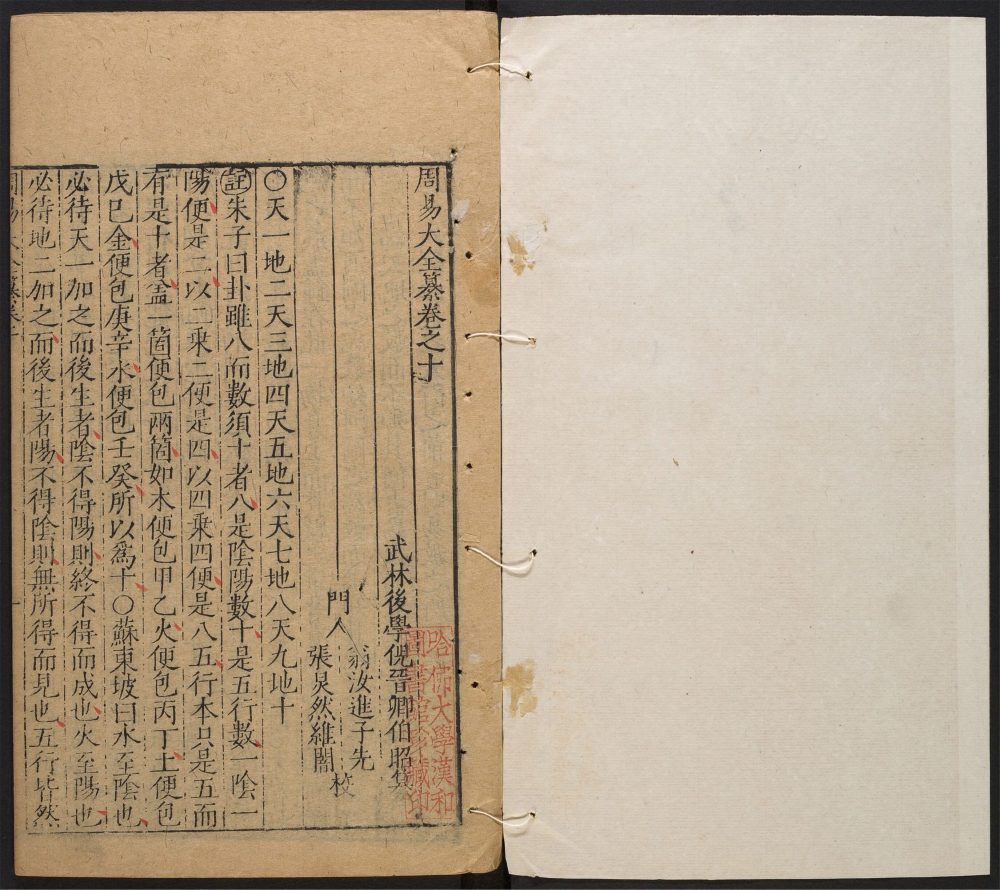 周易大全纂卷之十
武林後學倪晉卿伯昭纂
門人
翁汝進子先
張炅然維闇
校
○天一地二天三地四天五地六天七地八天九地十
註朱子曰卦雖八而數須十者八是陰陽數十是五行數一陰一
陽便是二以二乘二便是四以四乘四便是八五行本只是五而
有是十者盖一箇便包兩箇如木便包甲乙火便包丙丁土便包
戊巳金便包庚辛水便包壬癸所以爲十○蘇東坡曰水至陰也
必待天一加之而後生者陰不得陽則終不得而成也火至陽也
必待地二加之而後生者陽不得陰則無所得而見也五行皆然
哈佛大學漢和
圖書館珍藏印